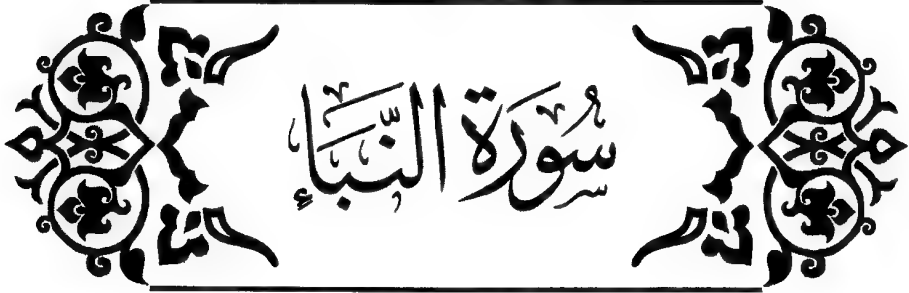 سُورَة النَّبَإِ